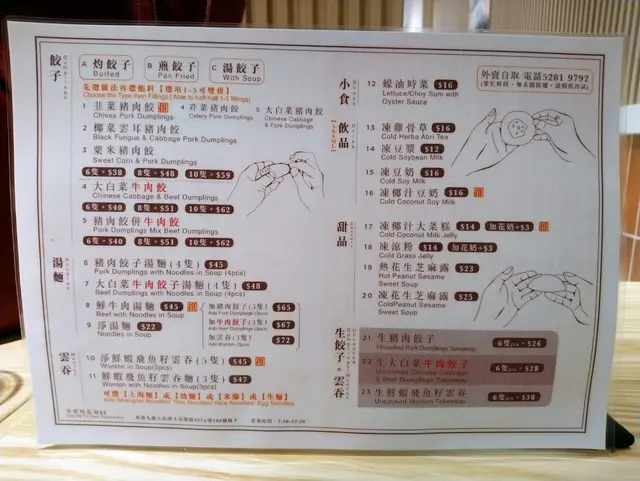 餃子
Dumplings
A 灼餃子
Boiled
B 煎餃子
Pan Fried
C 湯餃子
With Soup
先選做法再選餡料【選項1-5可雙併】
Choose the Type then Fillings [Able to half-half 1-5 fillings]
1 韭菜豬肉餃
Chives Pork Dumplings
4 芹菜豬肉餃
Celery Pork Dumplings
5 大白菜豬肉餃
Chinese Cabbage & Pork Dumplings
2 椰菜雲耳豬肉餃
Black Fungus & Cabbage Pork Dumplings
3 粟米豬肉餃
Sweet Corn & Pork Dumplings
6隻 • $38 8隻 • $48 10隻 • $59
4 大白菜牛肉餃
Chinese Cabbage & Beef Dumplings
6隻 • $40 8隻 • $51 10隻 • $62
5 豬肉餃併牛肉餃
Pork Dumplings Mix Beef Dumplings
6隻 • $40 8隻 • $51 10隻 • $62
湯麵
6 豬肉餃子湯麵（4隻） $45
Pork Dumplings with Noodles in Soup (4pcs)
7 大白菜牛肉餃子湯麵（4隻） $48
Beef Dumplings with Noodles in Soup (4pcs)
8 鮮牛肉湯麵 $45
Beef with Noodles in Soup
加豬肉餃子（3隻） $65
Add Pork Dumplings (3pcs)
加牛肉餃子（3隻） $67
加雲吞（3隻） $72
Add Wonton (3pcs)
9 淨湯麵 $22
Noodles in Soup
雲吞
10 淨鮮蝦飛魚籽雲吞（5隻） $45
Wonton in Soup(5pcs)
11 鮮蝦飛魚籽雲吞麵（3隻） $47
Wonton with Noodles in Soup(3pcs)
可選【上海麵】或【幼麵】或【米線】或【生麵】
營業時間：
小食
12 蠔油時菜 $16
Lettuce/Choy Sum with Oyster Sauce
外賣自取 電話5281 9792
飲品
13 凍雞骨草 $16
Cold Herba Abri Tea
14 凍豆漿 $12
Cold Soybean Milk
15 凍豆奶 $16
Cold Soy Milk
16 凍椰汁豆奶 $16
Cold Coconut Soy Milk
甜品
17 凍椰汁大菜糕 $14 加花奶+$3
Cold Coconut Milk Jelly
18 凍涼粉 $14 加花奶+$3
Cold Grass Jelly
19 熱花生芝麻露 $23
Hot Peanut Sesame Sweet Soup
20 凍花生芝麻露 $25
ColdPeanut Sesame Sweet Soup
生餃子。雲吞
21 生豬肉餃子 6隻pcs • $26
Uncooked Pork Dumplings Takeaway
22 生大白菜牛肉餃子 6隻pcs • $28
Uncooked Chinese Cabbage & Beef Dumplings Takeaway
23 生鮮蝦飛魚籽雲吞 6隻pcs • $38
Uncooked Wonton Takeaway